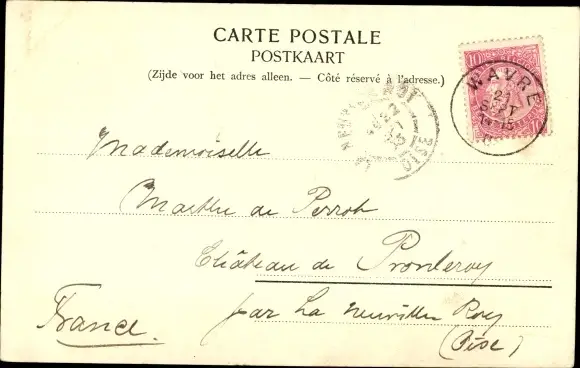 CARTE POSTALE
POSTKAART
(Zijde voor het adres alleen. — Côté réservé à l'adresse.)
10 10
WAVRE
SEPT
Mademoiselle
Marthe de Perrot
Château de Pronleroy
par La Neuville Roy
(Oise)
France.